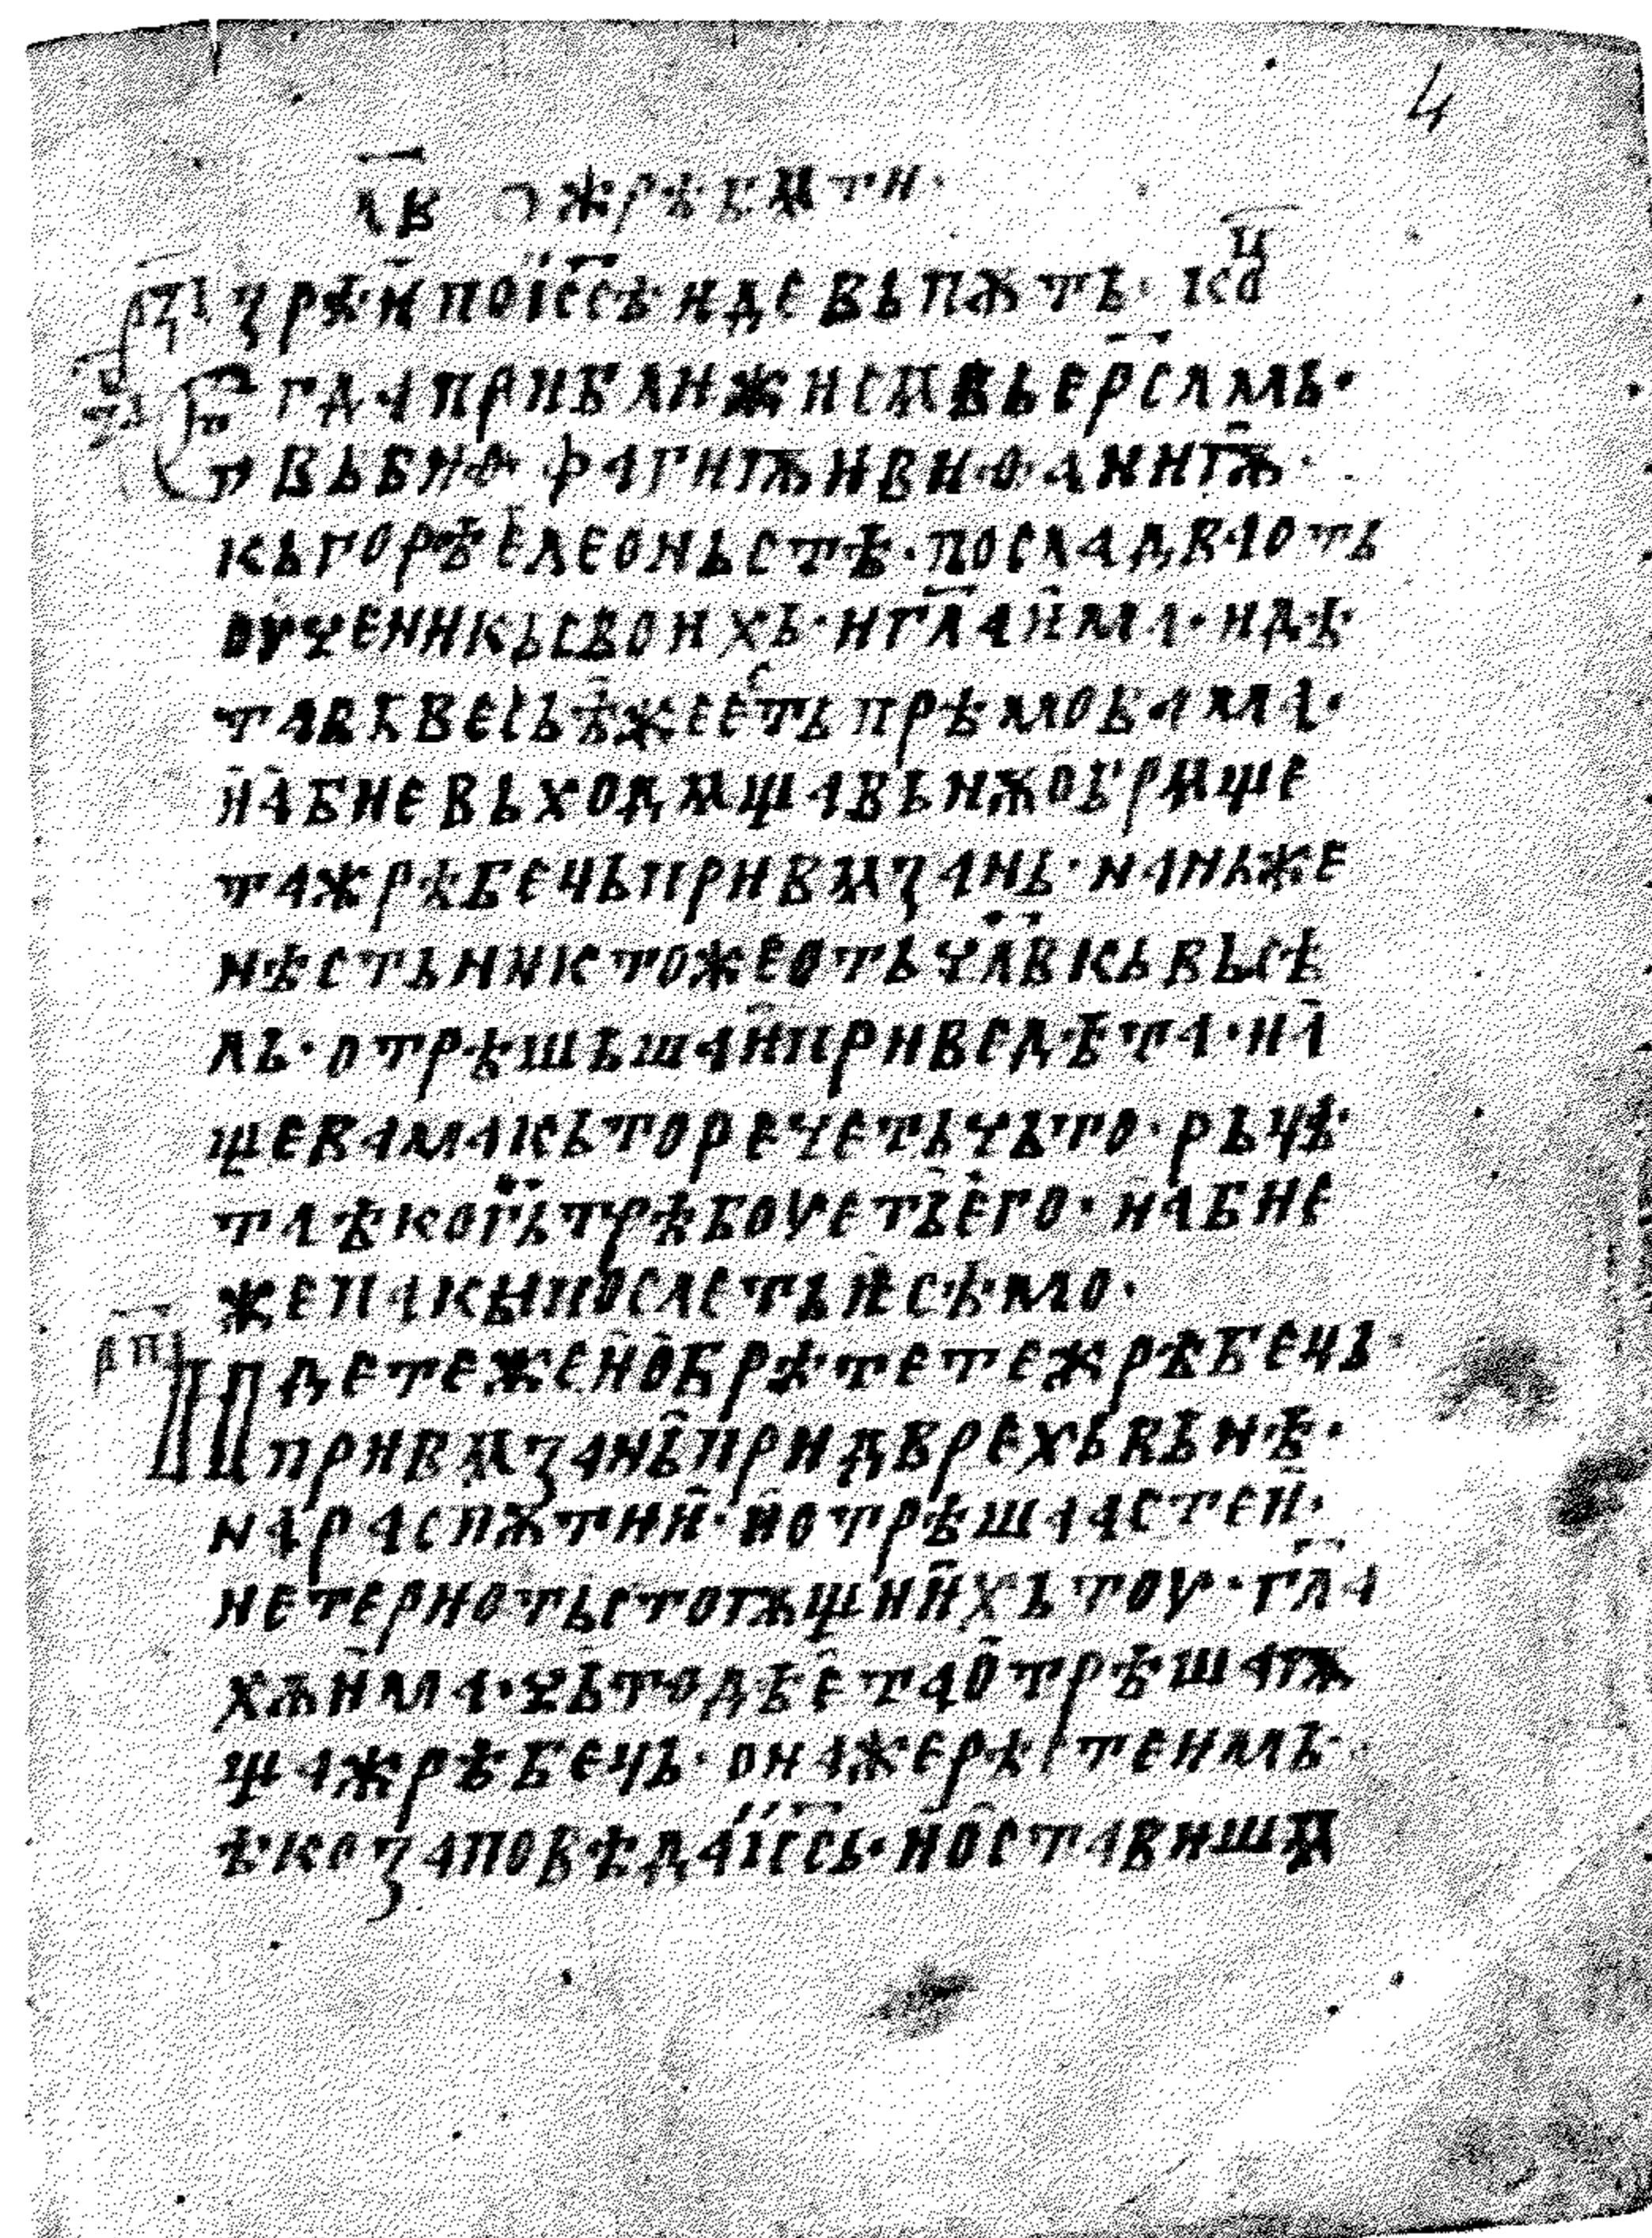 4
л҃в о жрѣбѧти·
ꙁрѣ и по і҃ссѣ иде въ пѫть· кⷰ҇а
Егда приближисѧ въ ер҃слмъ·
въ виѳ фагиѭ и виѳаниѭ·
къ горѣ елеоньстѣ· посла два оть
оученикь своихъ· и г҃ла има· идѣ
та въ весь ѣже еⷭть прѣмо вама·
и абие въходѧща въ нѫ обрѧще
та жрѣбець привѧꙁань· на ньже
нѣсть никтоже оть ч҃лвкь въсѣ
лъ· отрѣшъша и приведѣта· и а
ще вама къто речеть чьто· рьцѣ
та ѣко г҃ь трѣбоуеть его· и абие
же пакы послеть и сѣмо·
Идете же и обрѣтете жрѣбець·
привѧꙁань при дврехъ вънѣ·
на распѫтии· и отрѣшаасте и·
нетери оть стоѭщиихъ тоу· г҃ла
хѫ има· чьто дѣета отрѣшаѭ
ща жрѣбець· она же рѣстe имъ·
ѣко ꙁаповѣда і҃ссь· и оставишѧ